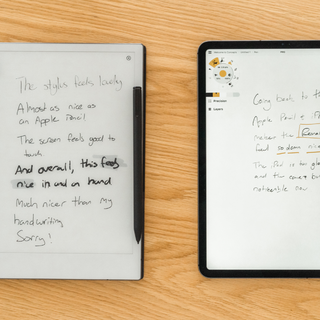 The stylus feels lovely
Almost as nice as
an Apple Pencil
The screen feels good to
touch
And overall, this feels
nice in and on hand
Much nicer than my
handwriting
Sorry!
Going back to th
Apple Pencil +
makes the
feel so damn nice
The iPad is too
and the
noticeable now
Precision
Layers